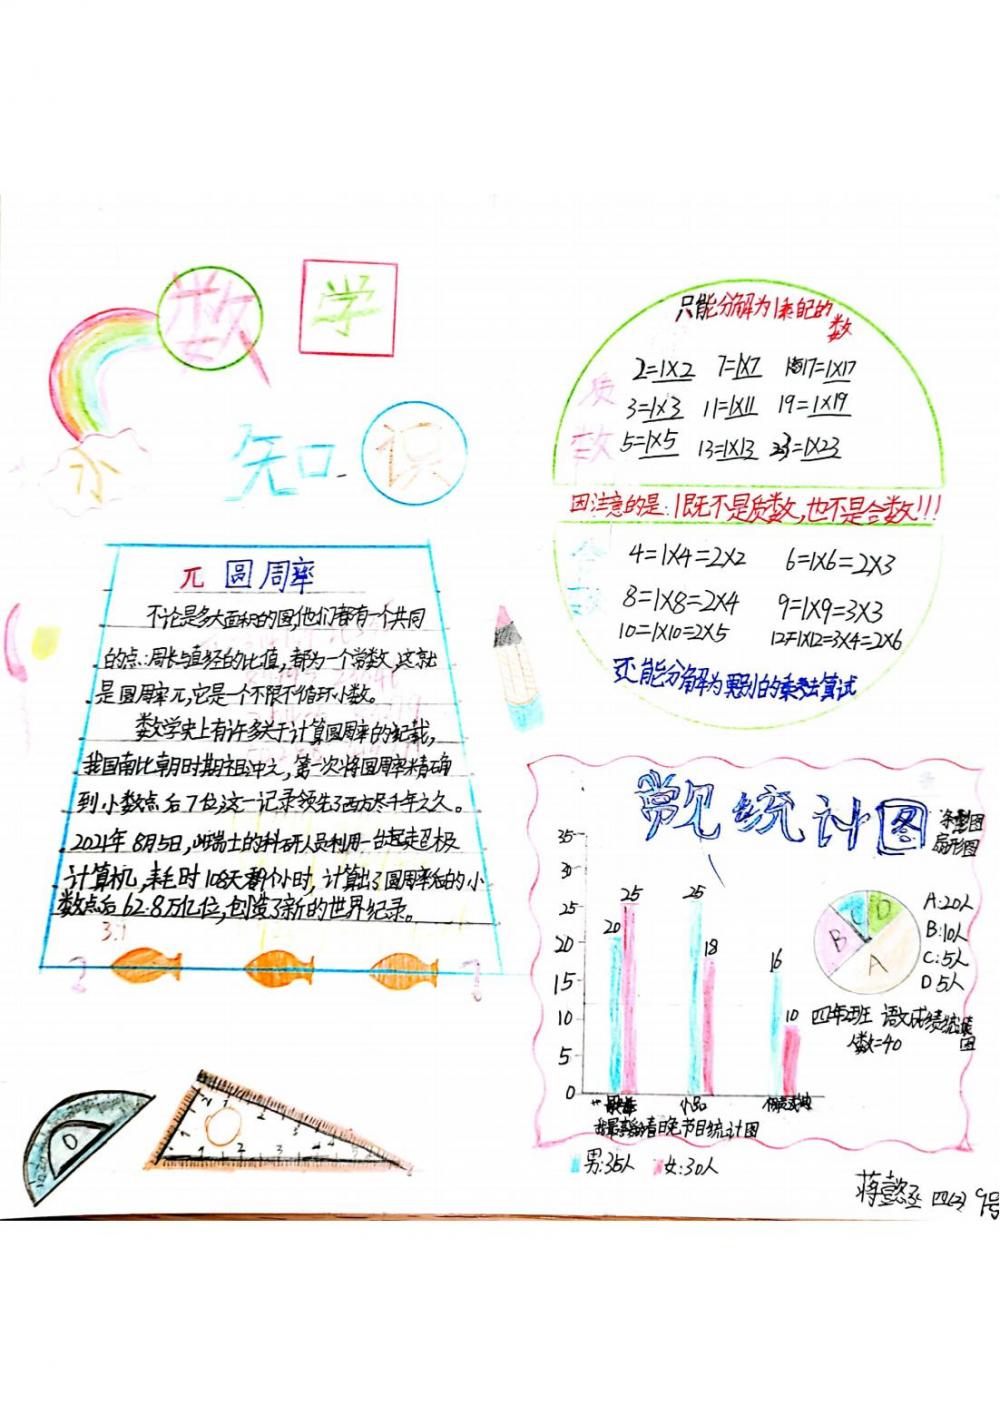 数学
小知识
π 圆周率
不论是多大面积的圆,他们都有一个共同
的点:周长与直径的比值,都为一个常数,这就
是圆周率π,它是一个不限不循环小数。
数学史上有许多关于计算圆周率的纪载,
我国南北朝时期祖冲之,第一次将圆周率精确
到小数点后7位,这一记录领先了西方尽千年之久。
2021年8月5日,瑞士的科研人员利用一台起超极
计算机,耗时108天零9个小时,计算出了圆周率后的小
数点后62.8万亿位,创造了新的世界纪录。
3.1
只能分解为1乘自己的数
质数
2=1×2 7=1×7 17=1×17
3=1×3 11=1×11 19=1×19
5=1×5 13=1×13 23=1×23
因注意的是:1既无不是质数,也不是合数!!!
合数
4=1×4=2×2 6=1×6=2×3
8=1×8=2×4 9=1×9=3×3
10=1×10=2×5 12=1×12=3×4=2×6
还能分解为更别的乘法算试
常见统计图
条型图
扇形图
35
30
25
20
15
10
5
0
20 25 25 18 16 10
小品
春晚节目统计图
男:35人 女:30人
A B C D
A:20人
B:10人
C:5人
D 5人
语文成绩统计图
人数=40
蒋懿丞 四(2) 9号